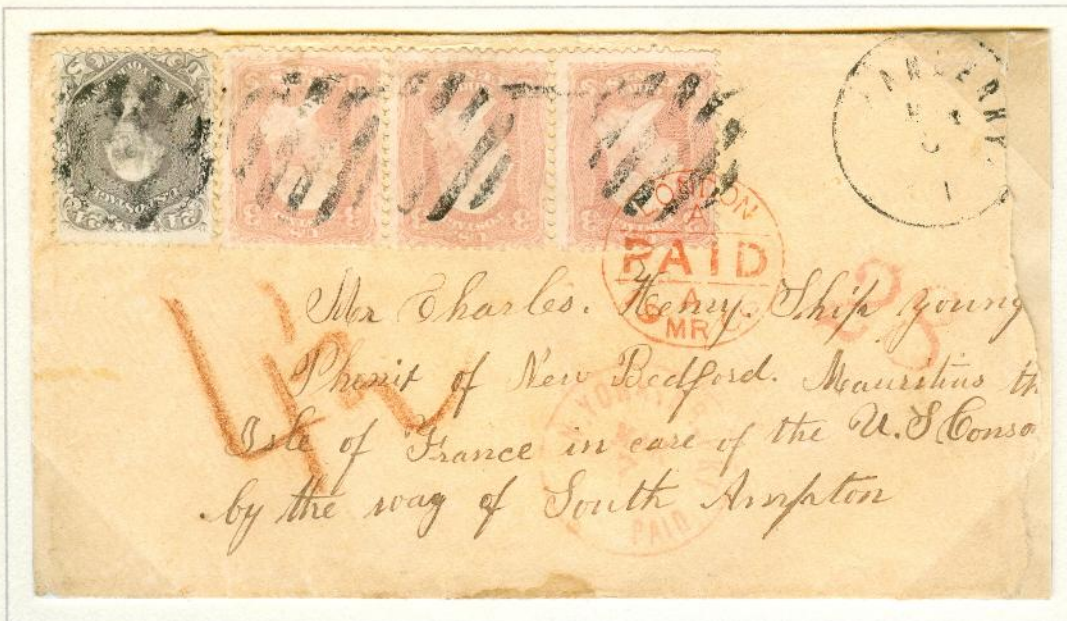 LONDON
A
PAID
A
MR
28
Mr Charles. Henry. Ship young
Phenix of New Bedford. Mauritius th
Isle of France in care of the U.S Conso
by the way of South Ampton
PAID